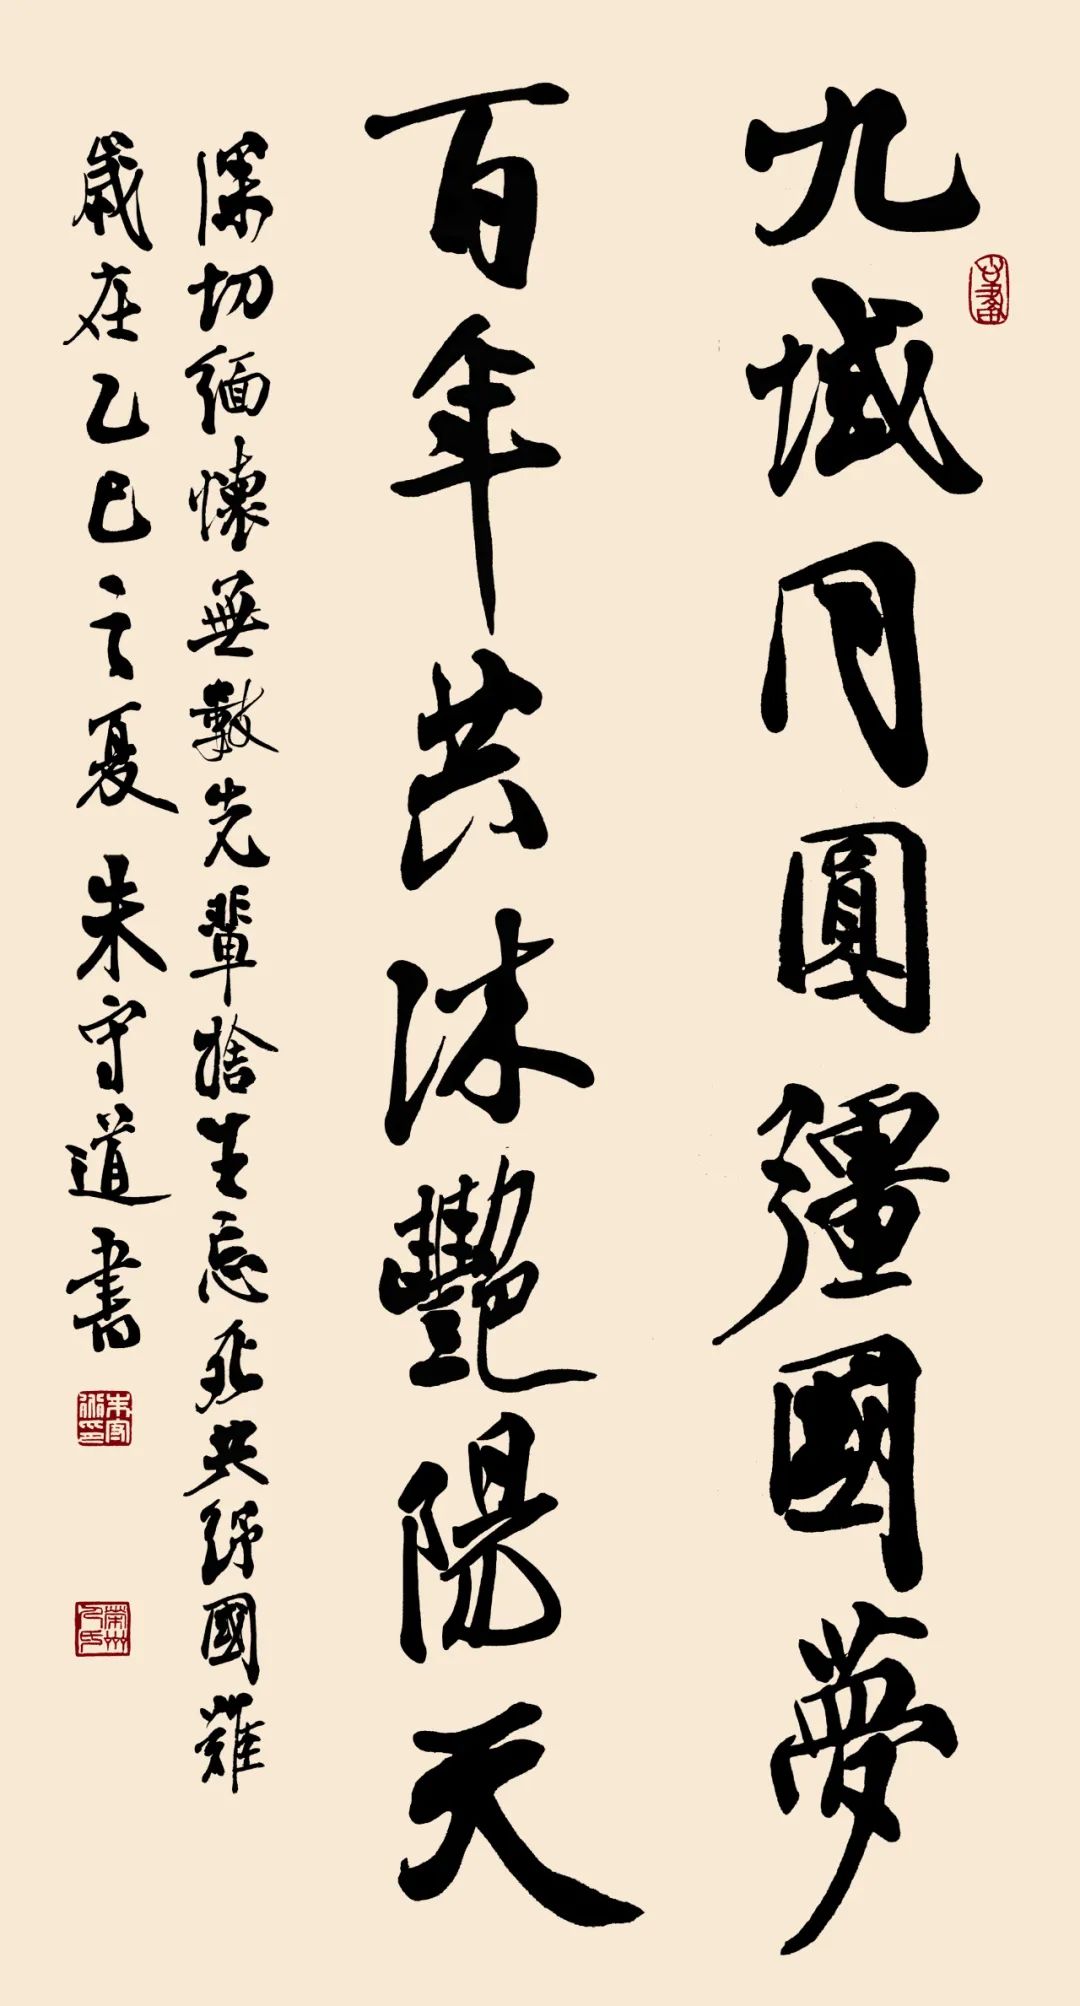 九域同圓彊國夢
百年共沐艷陽天
深切緬懷無數先輩捨生忘死共紓國難
歲在乙巳之夏朱守道書